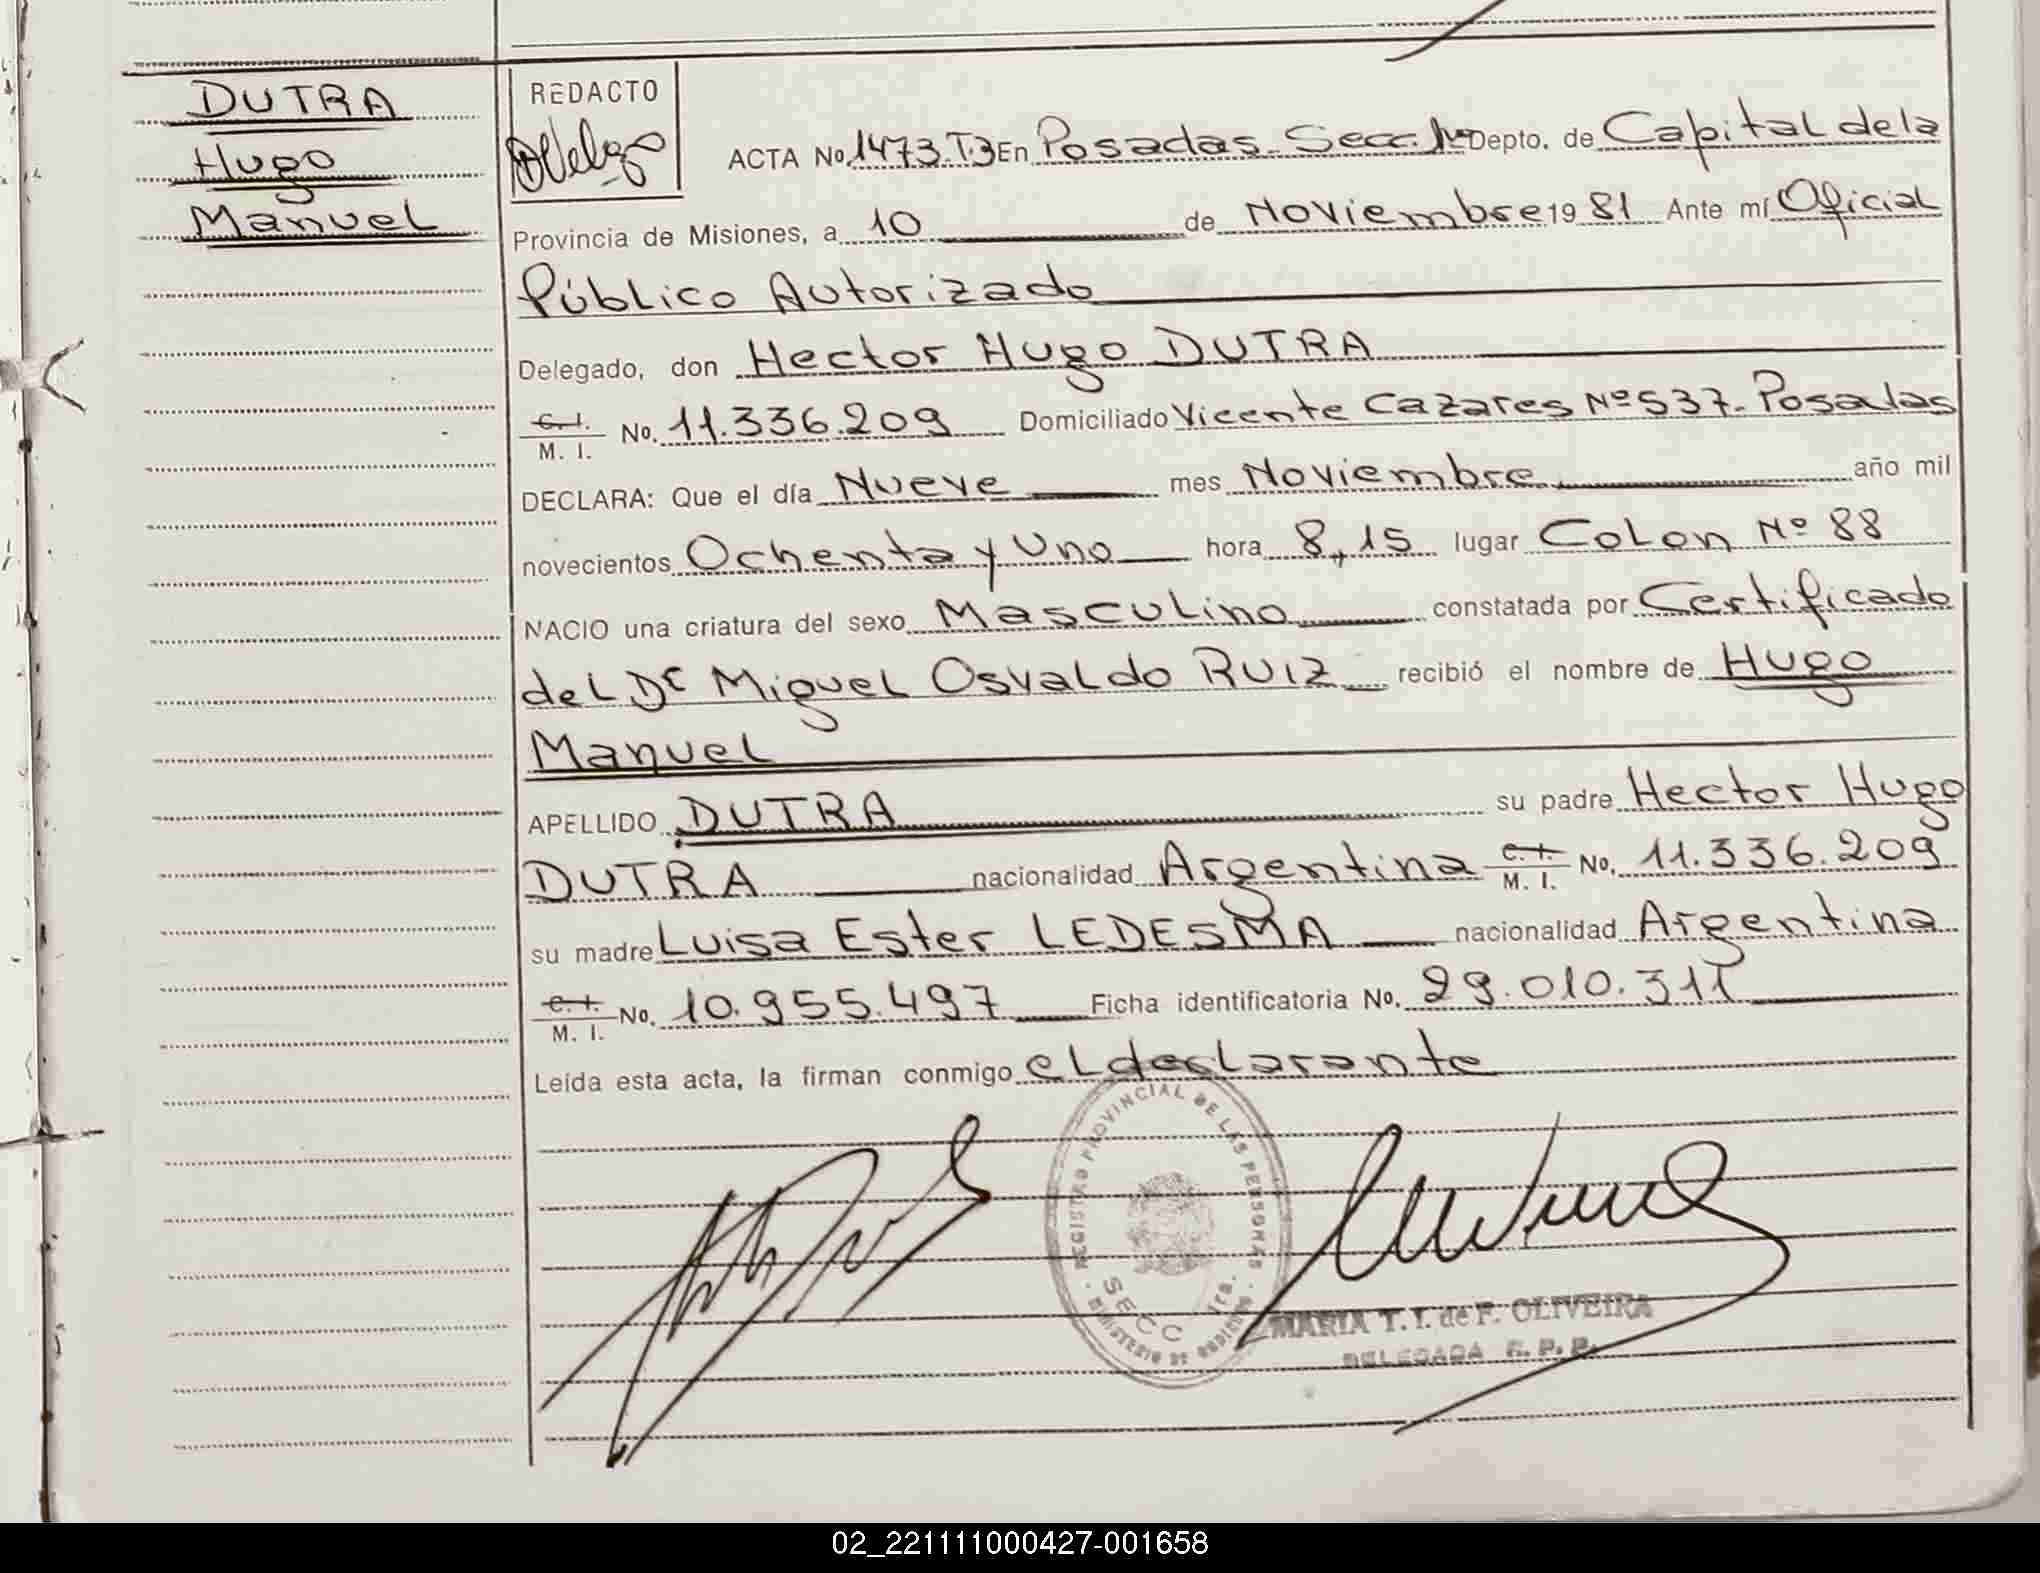 DUTRA
Hugo
Manuel
REDACTO
ACTA No. 1473.T.3 En Posadas Secc. 1ra Depto. de Capital de la
Provincia de Misiones, a 10 de Noviembre 19 81 Ante mí Oficial
Público Autorizado
Delegado, don Hector Hugo DUTRA
C. I.
M. I. No. 11.336.209 Domiciliado Vicente Cazares Nº 537- Posadas
DECLARA: Que el día Nueve mes Noviembre año mil
novecientos Ochenta y Uno hora 8,15 lugar Colon Nº 88
NACIO una criatura del sexo Masculino constatada por Certificado
del Dr Miguel Osvaldo RUIZ recibió el nombre de Hugo
Manuel
APELLIDO DUTRA su padre Hector Hugo
DUTRA nacionalidad Argentina C. I. M. I. No. 11.336.209
su madre Luisa Ester LEDESMA nacionalidad Argentina
C. I.
M. I. No. 10.955.497 Ficha identificatoria No. 29.010.311
Leída esta acta, la firman conmigo el declarante
REGISTRO PROVINCIAL DE LAS PERSONAS
SECC 1ra.
MINISTERIO DE GOBIERNO
MARIA T. I. de F. OLIVEIRA
DELEGADA R. P. P.
02_221111000427-001658